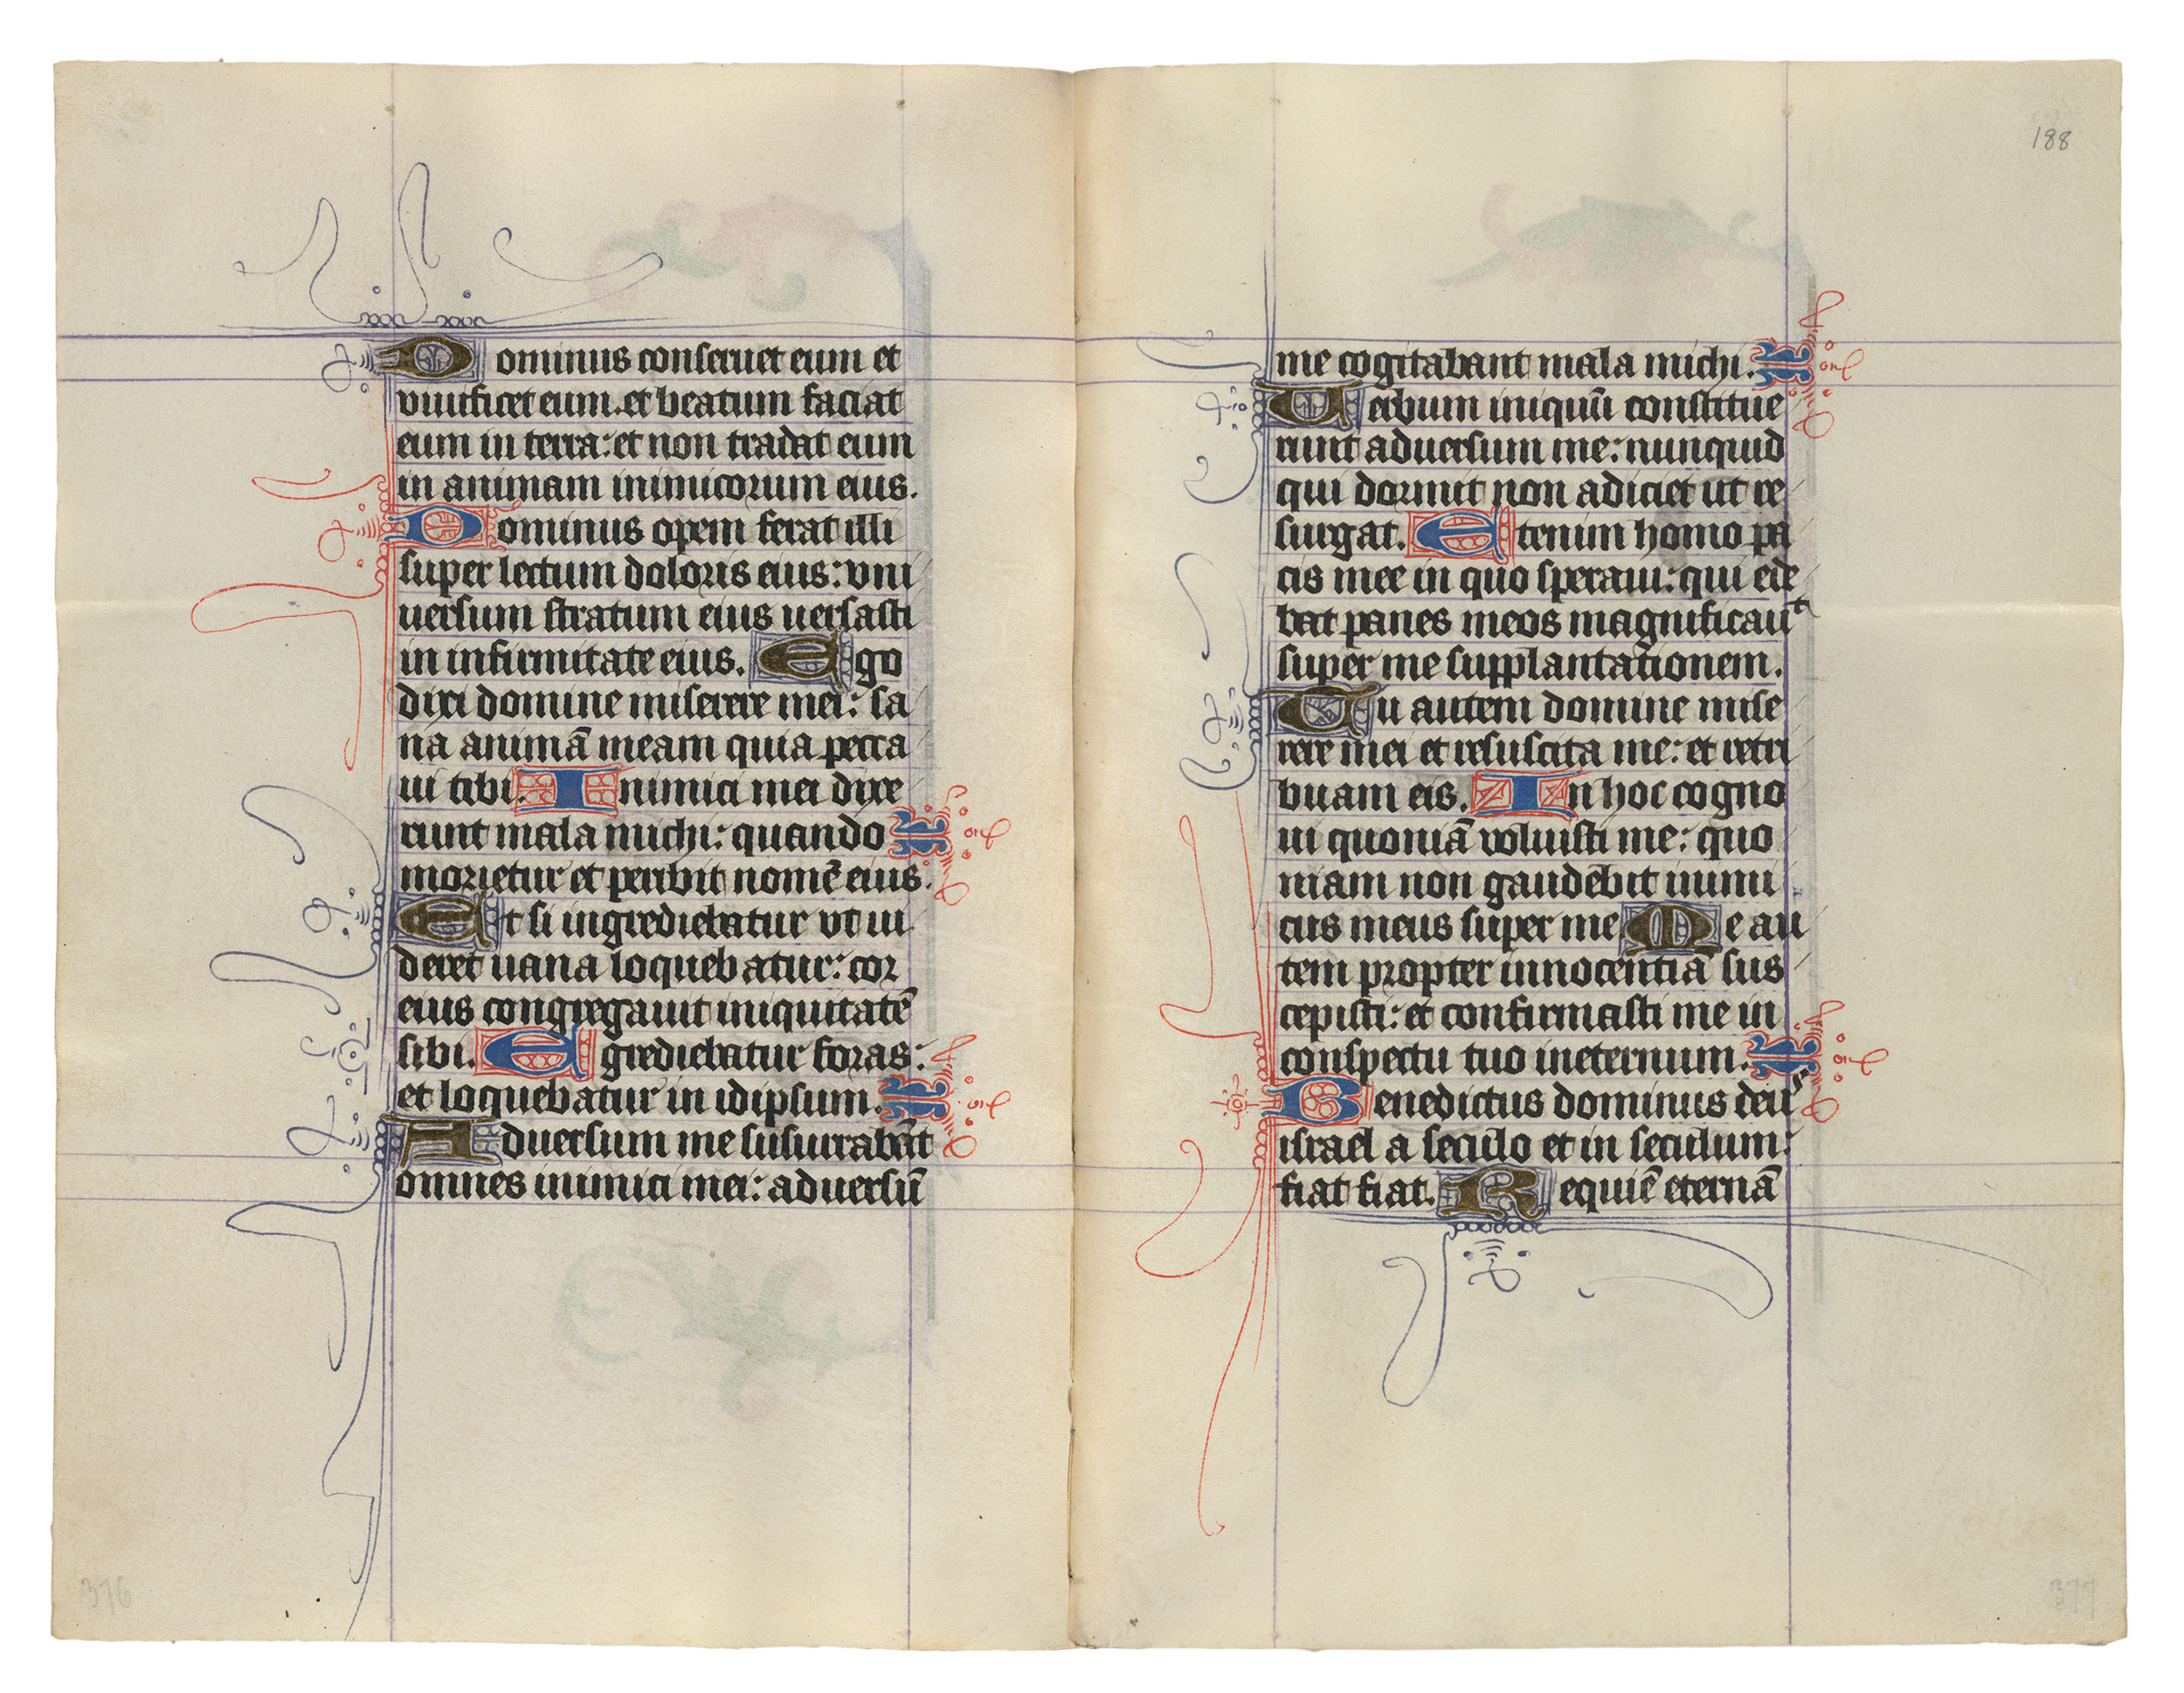 Dominus conseruet eum et
viuificet eum. et beatum faciat
eum in terra: et non tradat eum
in animam inimicorum eius.
Dominus opem ferat illi
super lectum doloris eius: vni
uersum stratum eius uersasti
in infirmitate eius. Ego
dixi domine miserere mei: sa
na animā meam quia pecca
ui tibi. Inimici mei dixe
runt mala michi: quando
morietur et peribit nomē eius.
Et si ingrediebatur vt ui
deret uana loquebatur: cor
eius congregauit iniquitatē
sibi. Egrediebatur foras:
et loquebatur in idipsum.
Aduersum me susurrabāt
omnes inimici mei: aduersū
376
188
me cogitabant mala michi.
Uerbum iniquū constitue
runt aduersum me: nunquid
qui dormit non adiciet ut re
surgat. Etenim homo pa
cis mee in quo speraui: qui ede
bat panes meos magnificauᵗ
super me supplantationem.
Tu autem domine mise
rere mei et resuscita me: et retri
buam eis. In hoc cogno
ui quoniā voluisti me: quo
niam non gaudebit inimi
cus meus super me Me au
tem propter innocentiā sus
cepisti: et confirmasti me in
conspectu tuo ineternum.
Benedictus dominus deuˢ
israel a seculo et in seculum:
fiat fiat. Requiē eternā
377